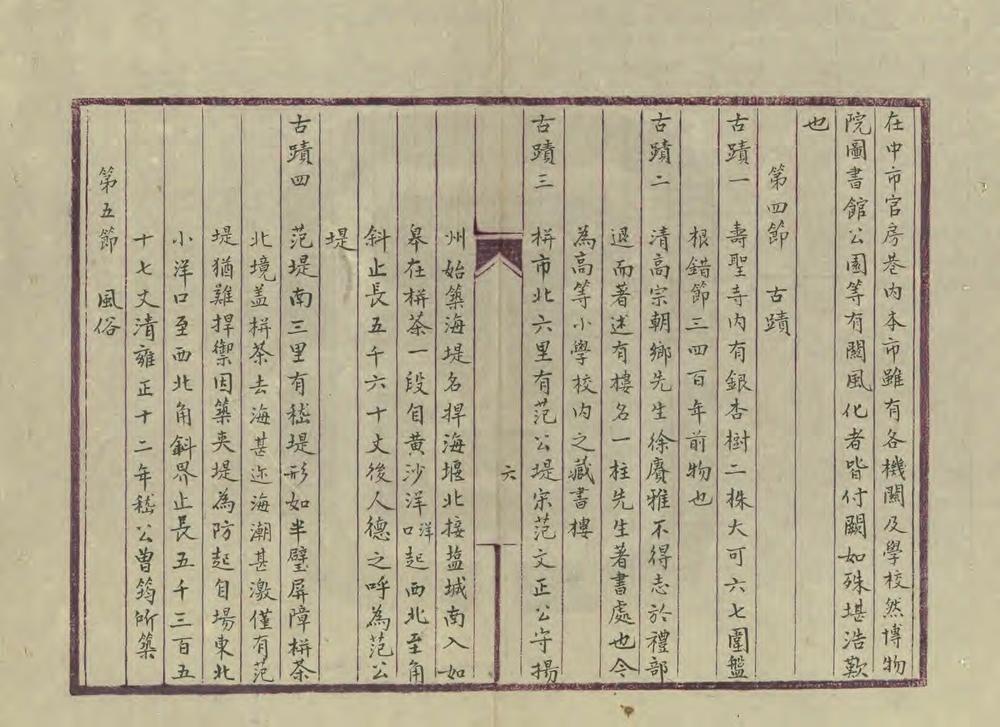 在中市官房巷內本市雖有各機關及學校然博物
院圖書館公園等有關風化者皆付闕如殊堪浩歎
也
第四節　古蹟
古蹟一　壽聖寺內有銀杏樹二株大可六七圍盤
根錯節三四百年前物也
古蹟二　清高宗朝鄉先生徐賡雅不得志於禮部
退而著述有樓名一柱先生著書處也今
為高等小學校內之藏書樓
古蹟三　栟市北六里有范公堤宋范文正公守揚
六
州始築海堤名捍海堰北接盐城南入如
皋在栟茶一段自黃沙洋洋口起西北至角
斜止長五千六十丈後人德之呼為范公
堤
古蹟四　范堤南三里有嵇堤形如半璧屏障栟茶
北境盖栟茶去海甚迩海潮甚激僅有范
堤猶難捍禦因築夾堤為防起自場東北
小洋口至西北角斜界止長五千三百五
十七丈清雍正十二年嵇公曾筠所築
第五節　風俗